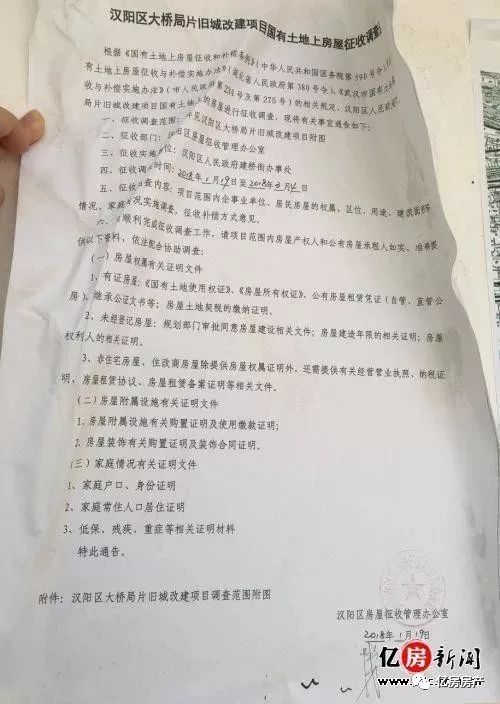 汉阳区大桥局片旧城改建项目国有土地上房屋征收调查
根据《国有土地上房屋征收和补偿条例》（中华人民共和国国务院第590号令）、
有土地上房屋征收与补偿实施办法》（湖北省人民政府第380号令）、《武汉市国有土
收与补偿实施办法》（市人民政府第234号及第275号）的相关规定，汉阳区人民政府
局片旧城改建项目国有土地上的房屋进行征收调查，现将有关事宜通告如下：
一、征收调查范围：见汉阳区大桥局片旧城改建项目附图
二、征收部门：汉阳区房屋征收管理办公室
三、征收实施单位：汉阳区人民政府建桥街办事处
四、征收调查时间：2018年1月19日至2018年3月 日
五、征收调查内容：项目范围内企事业单位、居民房屋的权属、区位、用途、建筑面积等
情况、家庭情况实施调查，征收补偿方式意见。
六、为顺利完成征收调查工作，请项目范围内房屋产权人和公有房屋承租人如实、准确提
供以下资料，依法配合协助调查：
（一）房屋权属有关证明文件
1、有证房屋：《国有土地使用权证》、《房屋所有权证》、公有房屋租赁凭证（自管、直管公
房）、继承公证文书等；房屋土地契税的缴纳证明。
2、未经登记房屋：规划部门审批同意房屋建设相关文件；房屋建造年限的相关证明；房屋
权利人的相关证明。
3、非住宅房屋、住改商房屋除提供房屋权属证明外，还需提供有关经营营业执照、纳税证
明、房屋租赁协议、房屋租赁备案证明等相关文件。
（二）房屋附属设施有关证明文件
1、房屋附属设施有关购置证明及使用缴款证明；
2、房屋装饰有关购置证明及装饰合同证明。
（三）家庭情况有关证明文件
1、家庭户口、身份证明
2、家庭常住人口居住证明
3、低保、残疾、重症等相关证明材料
特此通告。
附件：汉阳区大桥局片旧城改建项目调查范围附图
汉阳区房屋征收管理办公室
2018年1月19日
亿房新闻
www.fdc.com.cn
亿房房产